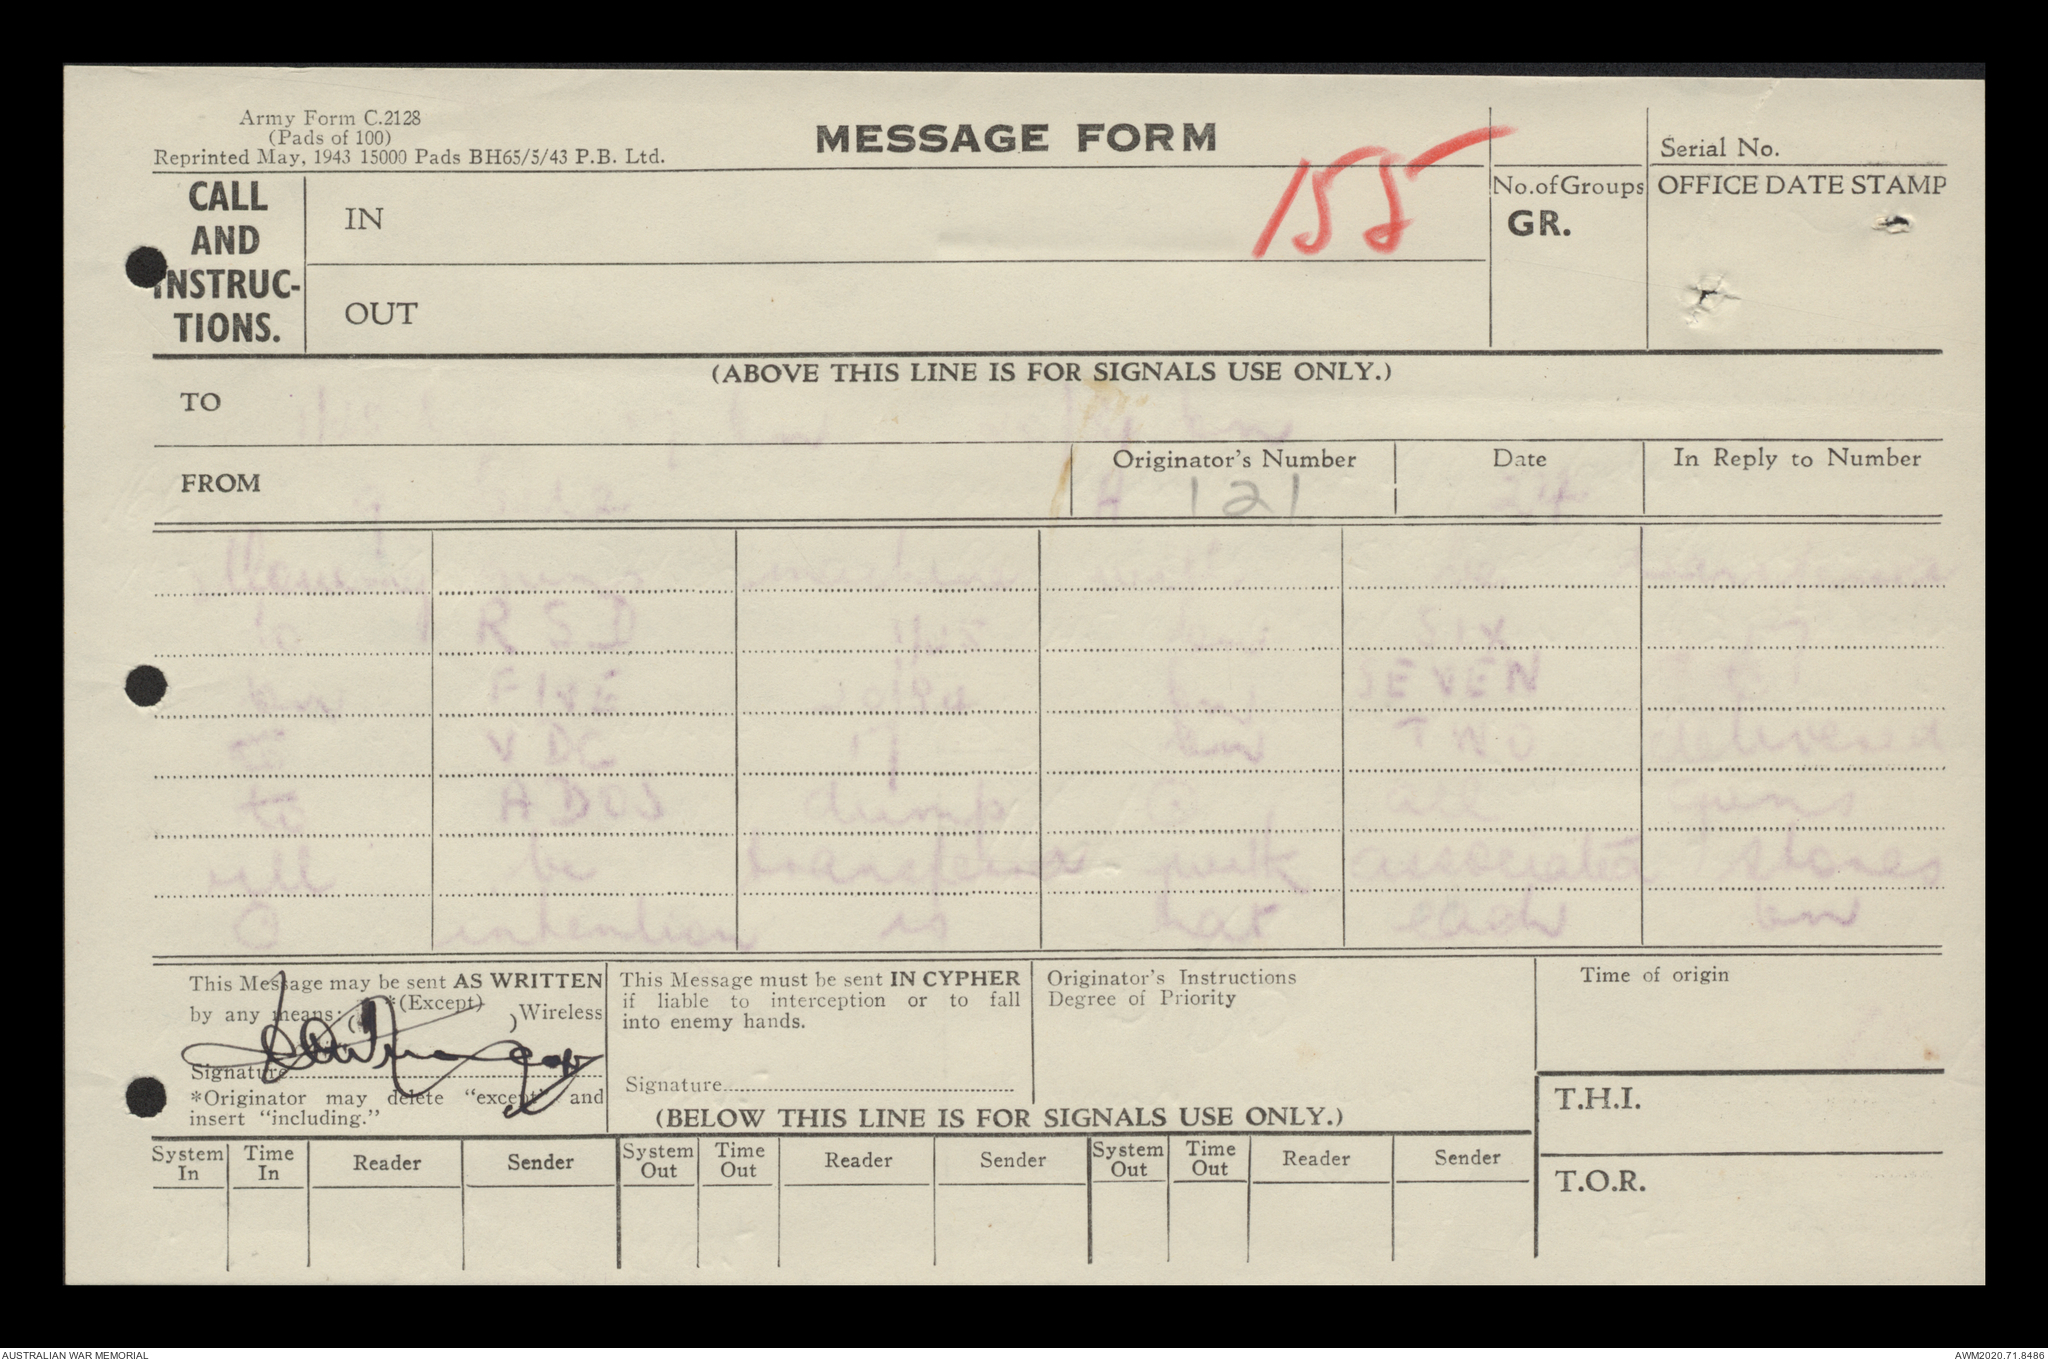 Army Form C.2128
(Pads of 100)
Reprinted May, 1943 15000 Pads BH65/5/43 P.B. Ltd.
MESSAGE FORM
155
Serial No.
CALL
AND
INSTRUC-
TIONS.
IN
OUT
No. of Groups
GR.
OFFICE DATE STAMP
(ABOVE THIS LINE IS FOR SIGNALS USE ONLY.)
TO
FROM
Originator's Number
A 121
Date
24
In Reply to Number
guns will be
to RSD 1/45 SIX 57
bn FIVE 20/94 SEVEN
to VDC bn TWO delivered
to ADOS dump O all guns
will be transferred with associated stores
O intention is that each bn
This Message may be sent AS WRITTEN
by any means: *(Except) Wireless
Signature
*Originator may delete "except" and
insert "including."
This Message must be sent IN CYPHER
if liable to interception or to fall
into enemy hands.
Signature
Originator's Instructions
Degree of Priority
Time of origin
T.H.I.
T.O.R.
(BELOW THIS LINE IS FOR SIGNALS USE ONLY.)
System In Time In Reader Sender System Out Time Out Reader Sender System Out Time Out Reader Sender
AUSTRALIAN WAR MEMORIAL
AWM2020.71.8486